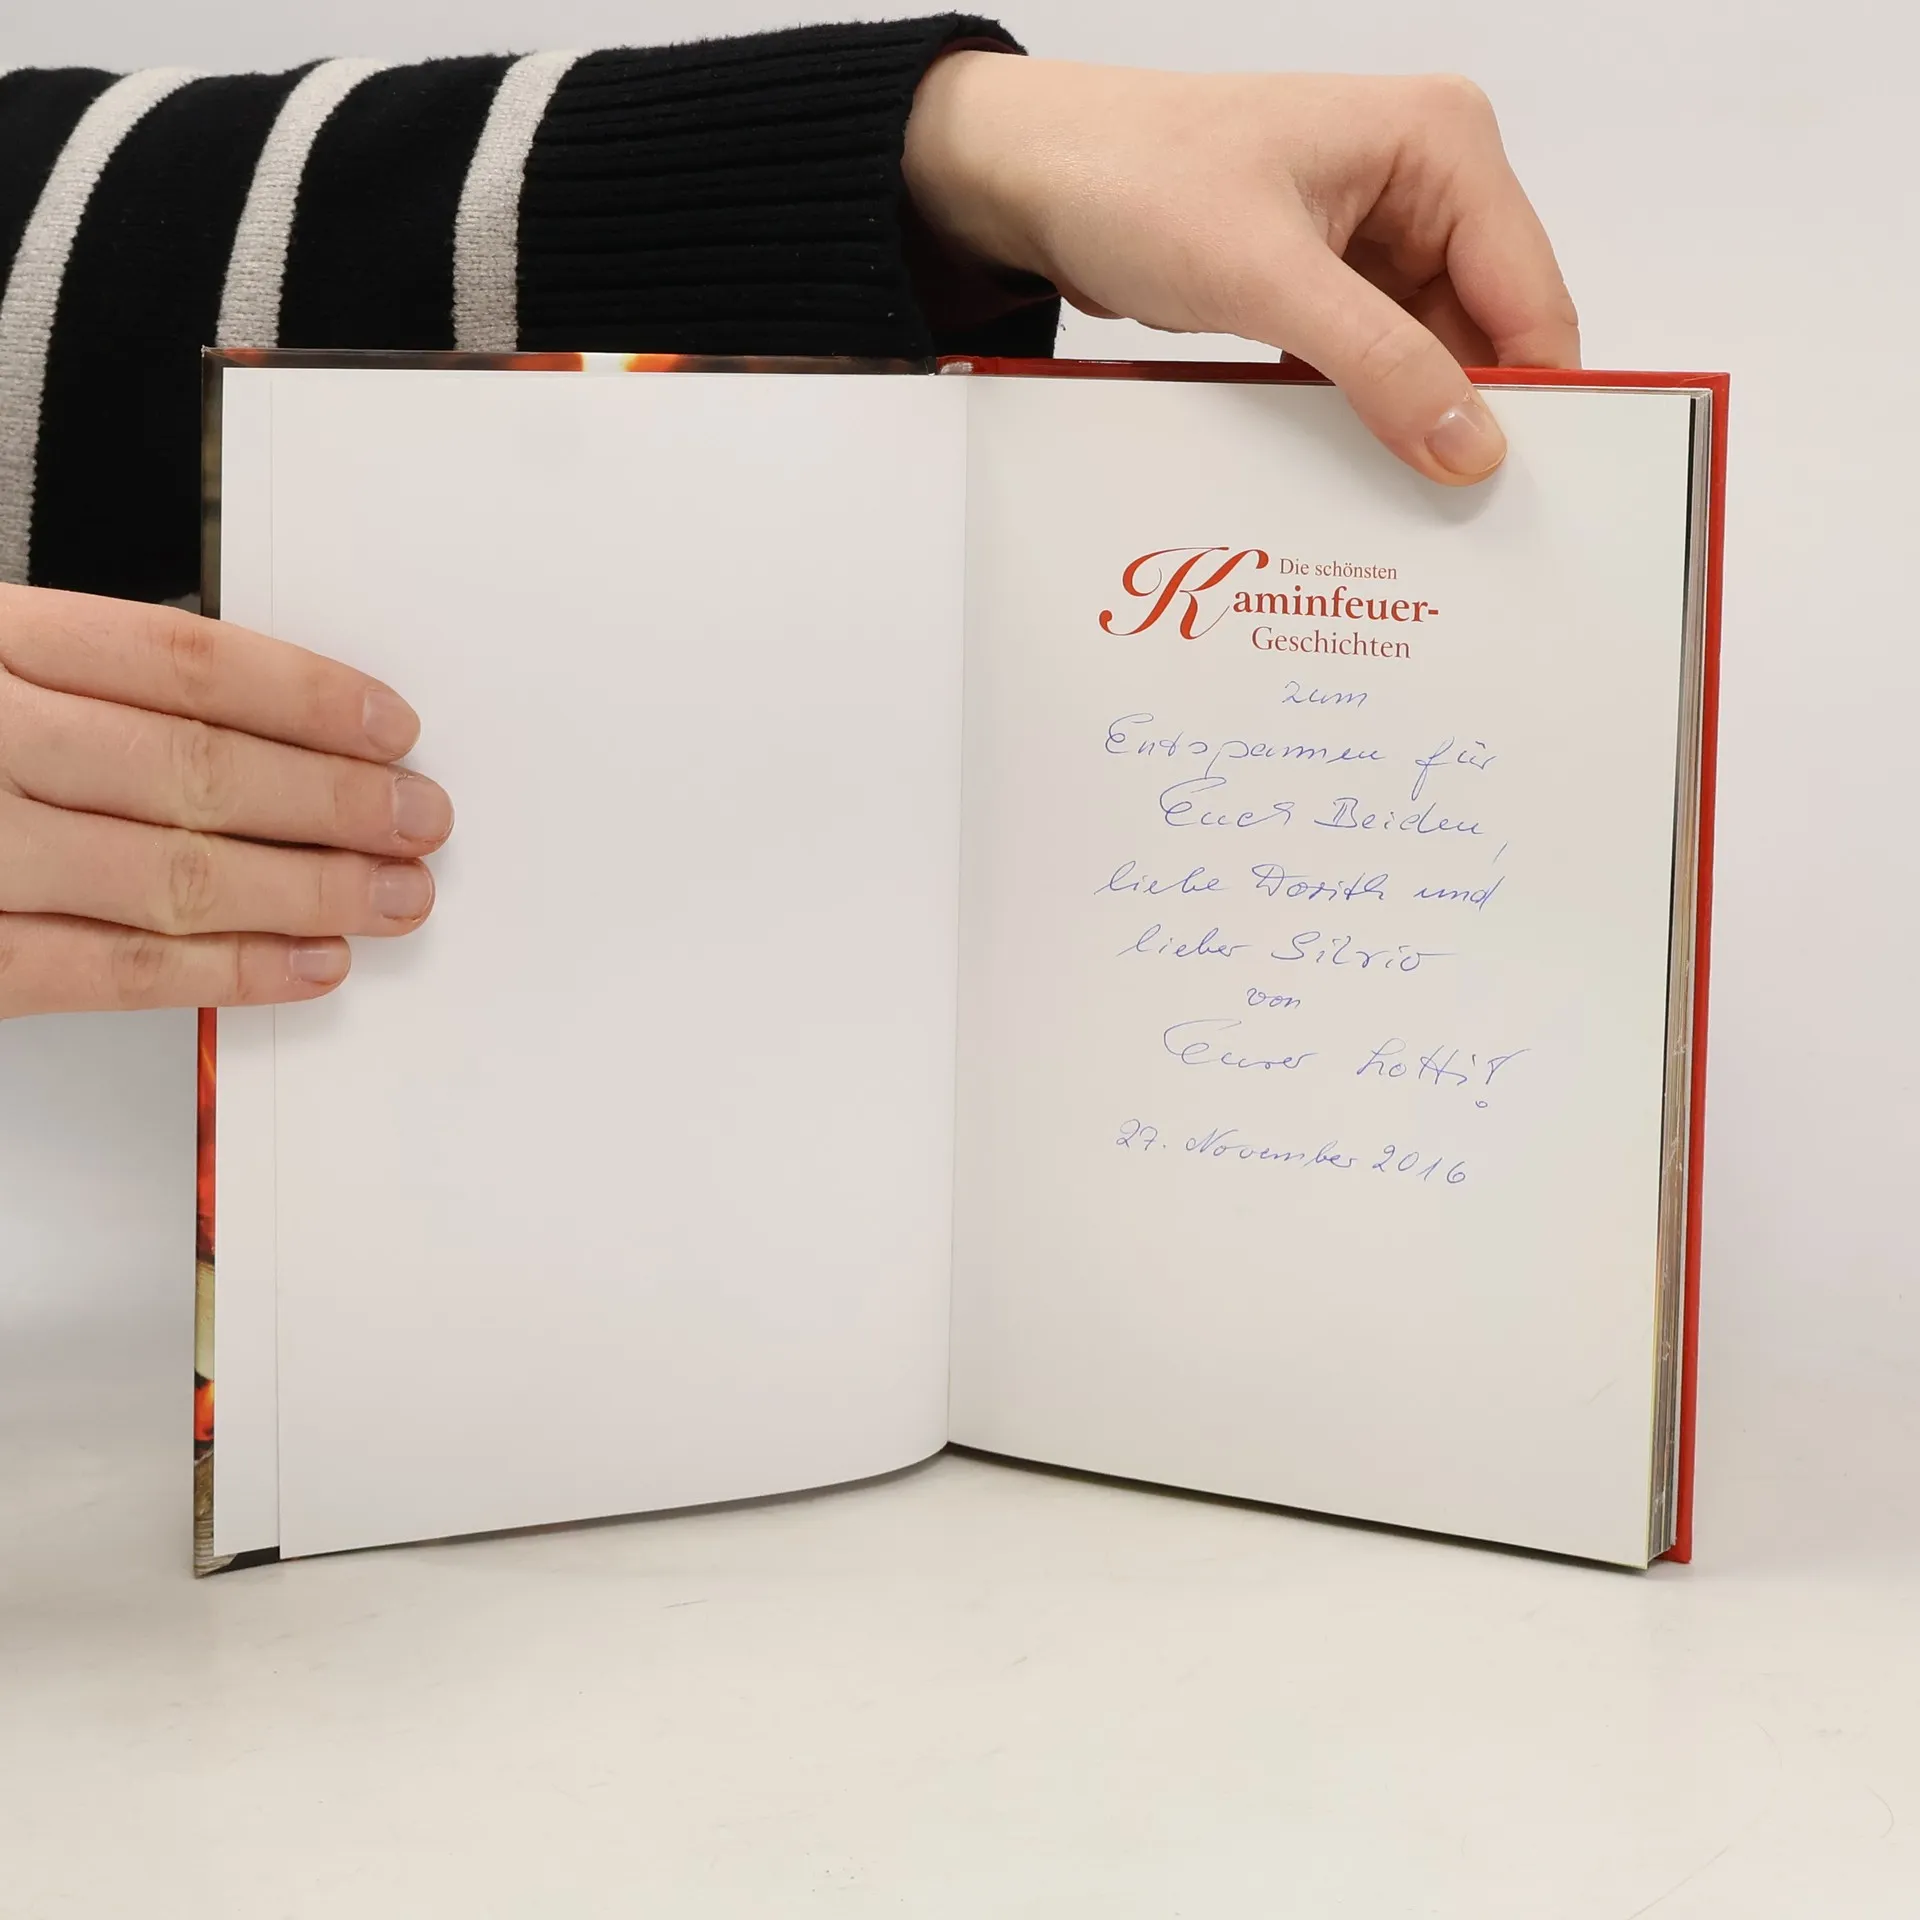 Die schönsten
Kaminfeuer-
Geschichten
zum
Entspannen für
Euch Beiden,
liebe Dorith und
lieber Silvio
von
Eurer Lotti!
27. November 2016